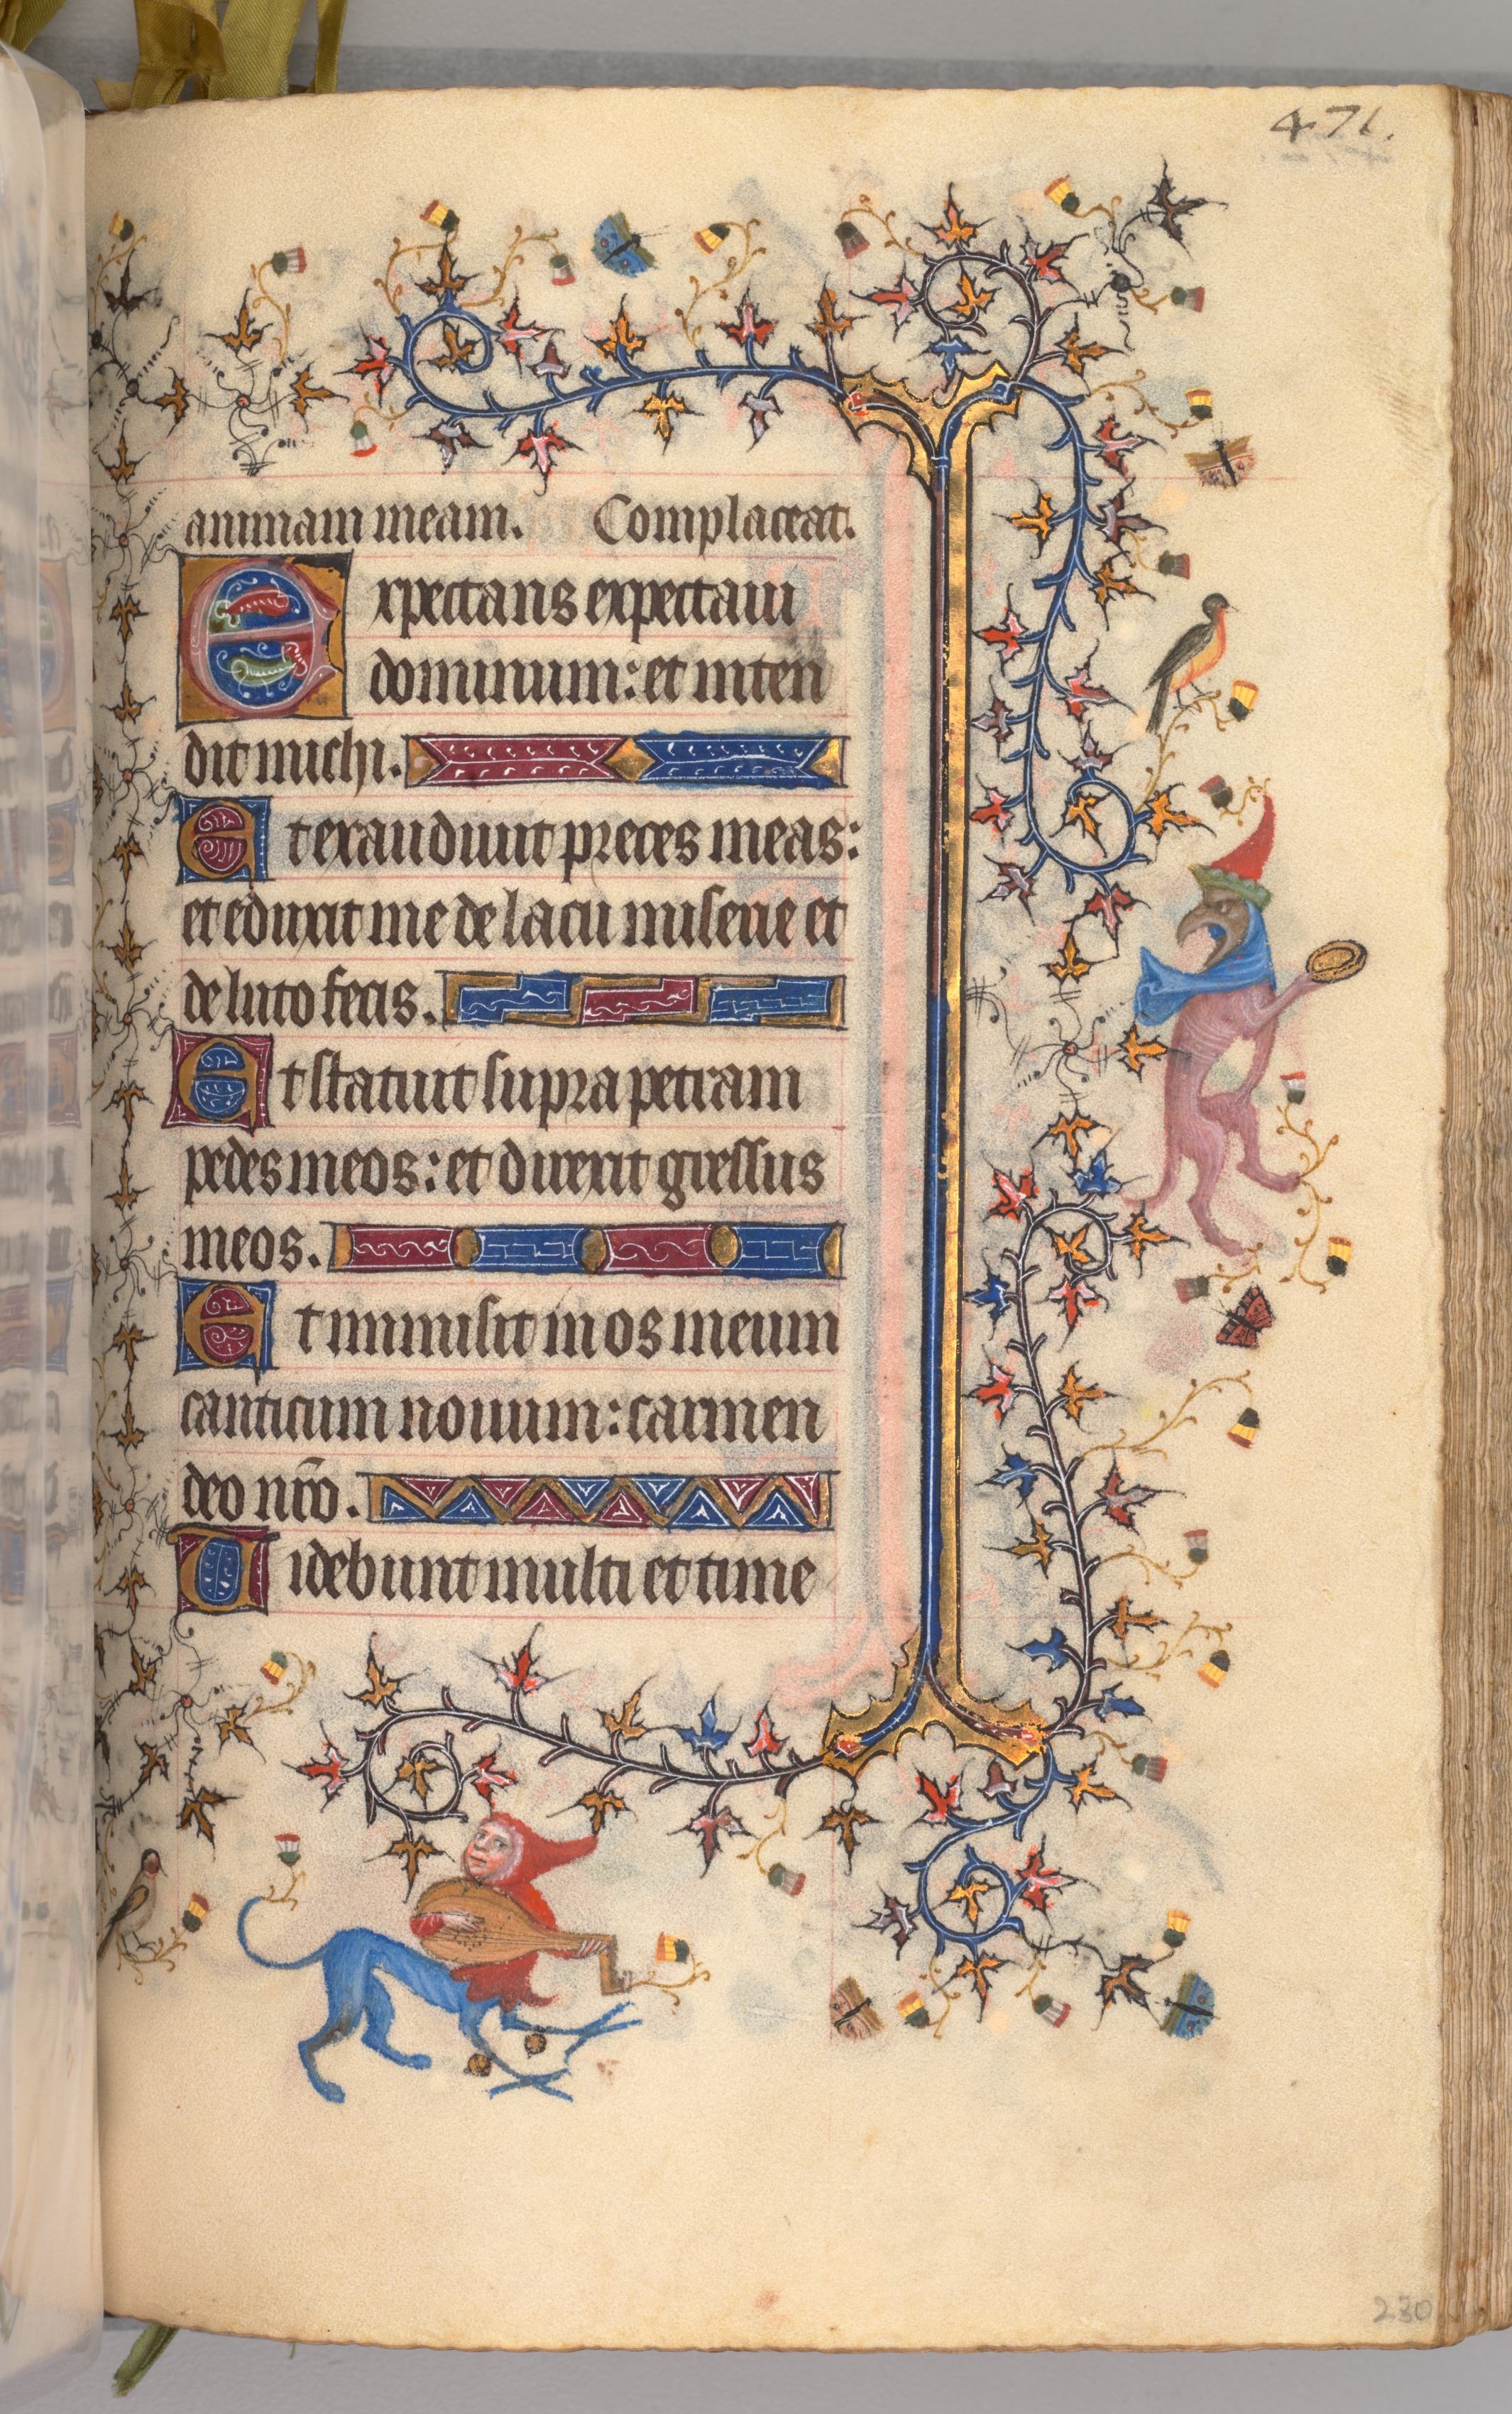 471.
animam meam. Complaceat.
Expectans expectaui
dominum: et inten
dit michi.
Et exaudiuit preces meas:
et eduxit me de lacu miserie et
de luto fecis.
Et statuit supra petram
pedes meos: et direxit gressus
meos.
Et inmisit in os meum
canticum nouum: carmen
deo nr̄o.
Uidebunt multi et time
230